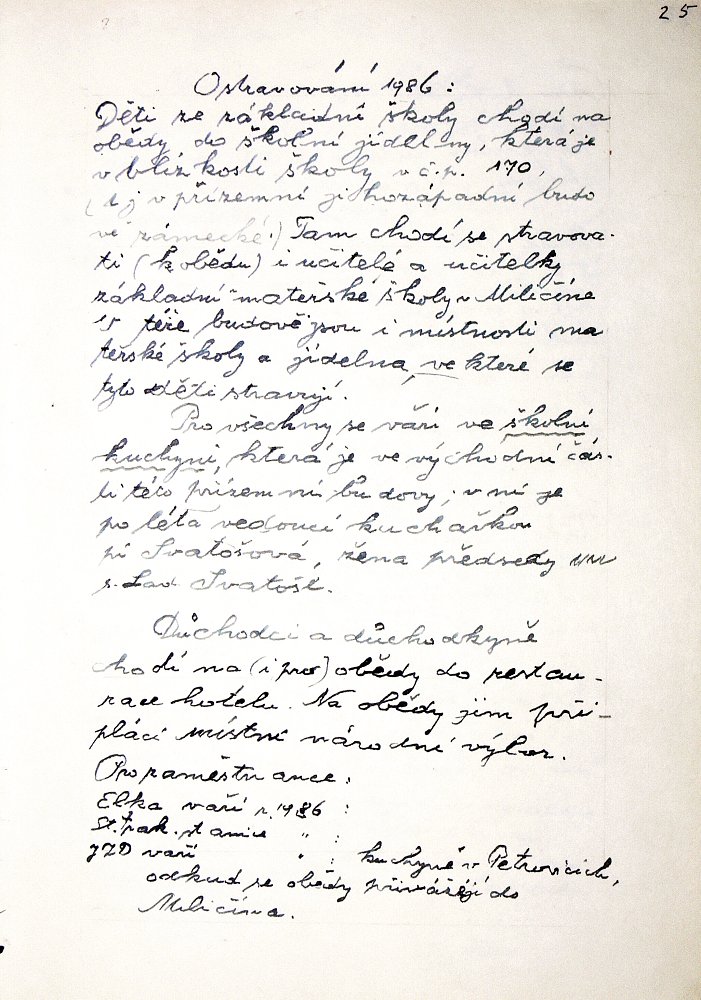 25
Ostravování 1986 :
Děti ze základní školy chodí na
obědy do školní jídelny, která je
v blízkosti školy v č.p. 170,
(t j v přízemní jihozápadní budo
vě zámecké.) Tam chodí se stravova-
ti (k obědu) i učitelé a učitelky
základní mateřské školy v Miličíně
V téže budově jsou i místnosti ma
teřské školy a jídelna, ve které se
tyto děti stravují.
Pro všechny se vaří ve školní
kuchyni, která je ve východní čás-
ti této přízemní budovy; v ní je
po léta vedoucí kuchařkou
pí Svatošová, žena předsedy
s. Lad Svatoše.
Důchodci a důchodkyně
chodí na (i pro) obědy do restau-
race hotelu. Na obědy jim při-
plácí místní národní výbor.
Pro zaměstnance:
Elka vaří r. 1986 :
St. trak. stanice " :
JZD vaří " : kuchyně v Petrovicích,
odkud se obědy přivážejí do
Miličína.